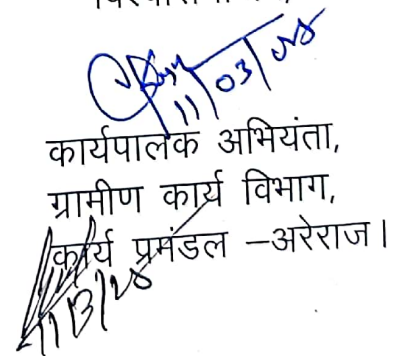 11/03/25
कार्यपालक अभियंता,
ग्रामीण कार्य विभाग,
कार्य प्रमंडल –अरेराज।
11/3/25